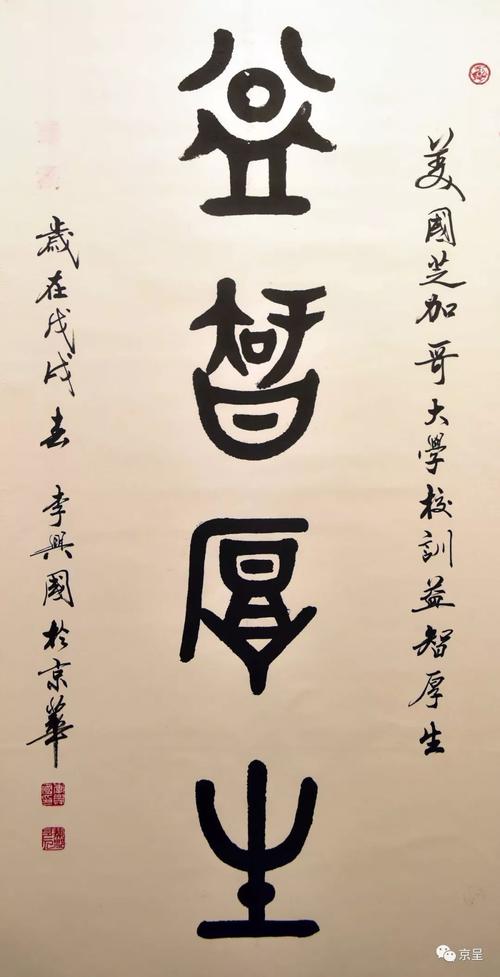 美國芝加哥大學校訓益智厚生
益智厚生
歲在戊戌春 李興國於京華
京呈